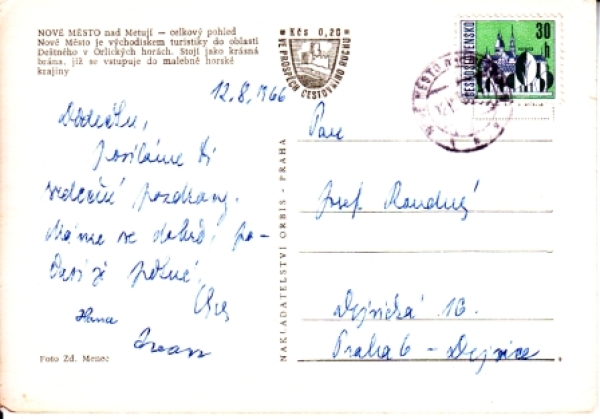 NOVÉ MĚSTO nad Metují — celkový pohled
Nové Město je východiskem turistiky do oblasti
Deštného v Orlických horách. Stojí jako krásná
brána, jíž se vstupuje do malebné horské
krajiny
Kčs 0,20
VE PROSPĚCH CESTOVNÍHO RUCHU
30
h
ČESKOSLOVENSKO
NOVÉ MĚSTO N
12.8.1966
Dědečku,
posíláme Ti
srdečné pozdravy.
Máme se dobře, po-
časí je pěkné.
Hana
Ivan
Pan
Josef Koudný
Dejvická 16.
Praha 6 - Dejvice
NAKLADATELSTVÍ ORBIS - PRAHA
Foto Zd. Menec